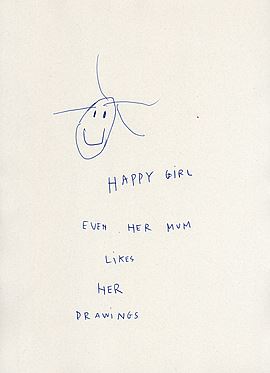 HAPPY GIRL
EVEN HER MUM
LIKES
HER
DRAWINGS